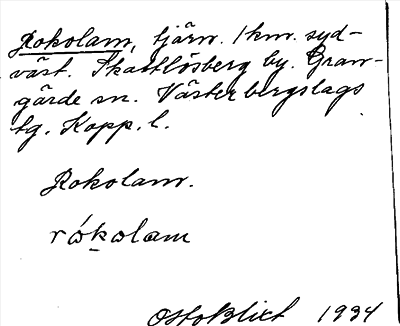 Rokolam, tjärn. 1 km. syd-
väst. Skattlösberg by. Gran-
gärde sn. Västerbergslags
tg. Kopp. l.
Rokolam.
rókolam
Otto Blixt 1934